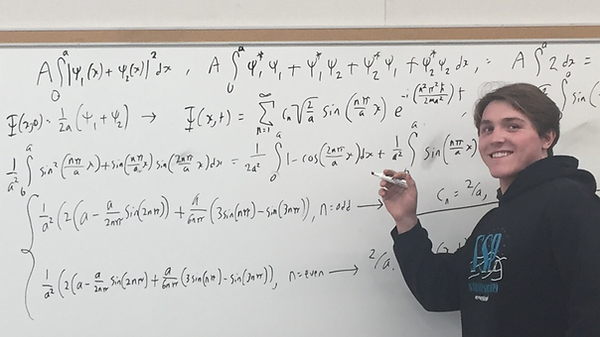 A ∫₀ᵃ |Ψ₁(x) + Ψ₂(x)|² dx , A ∫₀ᵃ Ψ₁*Ψ₁ + Ψ₁*Ψ₂ + Ψ₂*Ψ₁ + Ψ₂*Ψ₂ dx, = A ∫₀ᵃ 2 dx =
Ψ(x,0) = 1/2a (Ψ₁ + Ψ₂) → Ψ(x,t) = ∑ₙ₌₁^∞ cₙ √(2/a) sin(nπ/a x) e^(-i(n²π²ħ/2ma²)t ∫ sin(
1/a² ∫₀ᵃ sin²(nπ/a x) + sin(nπ/a x) sin(2nπ/a x) dx = 1/2a² ∫₀ᵃ 1 - cos(2nπ/a x) dx + 1/a² ∫ᵃ sin(nπ/a x)
{ 1/a² (2(a - a/2nπ sin(2nπ)) + a/6nπ (3sin(nπ) - sin(3nπ)), n=odd → cₙ = 2/a,
1/a² (2(a - a/2nπ sin(2nπ)) + a/6nπ (3sin(nπ) - sin(3nπ)), n=even → 2/a.